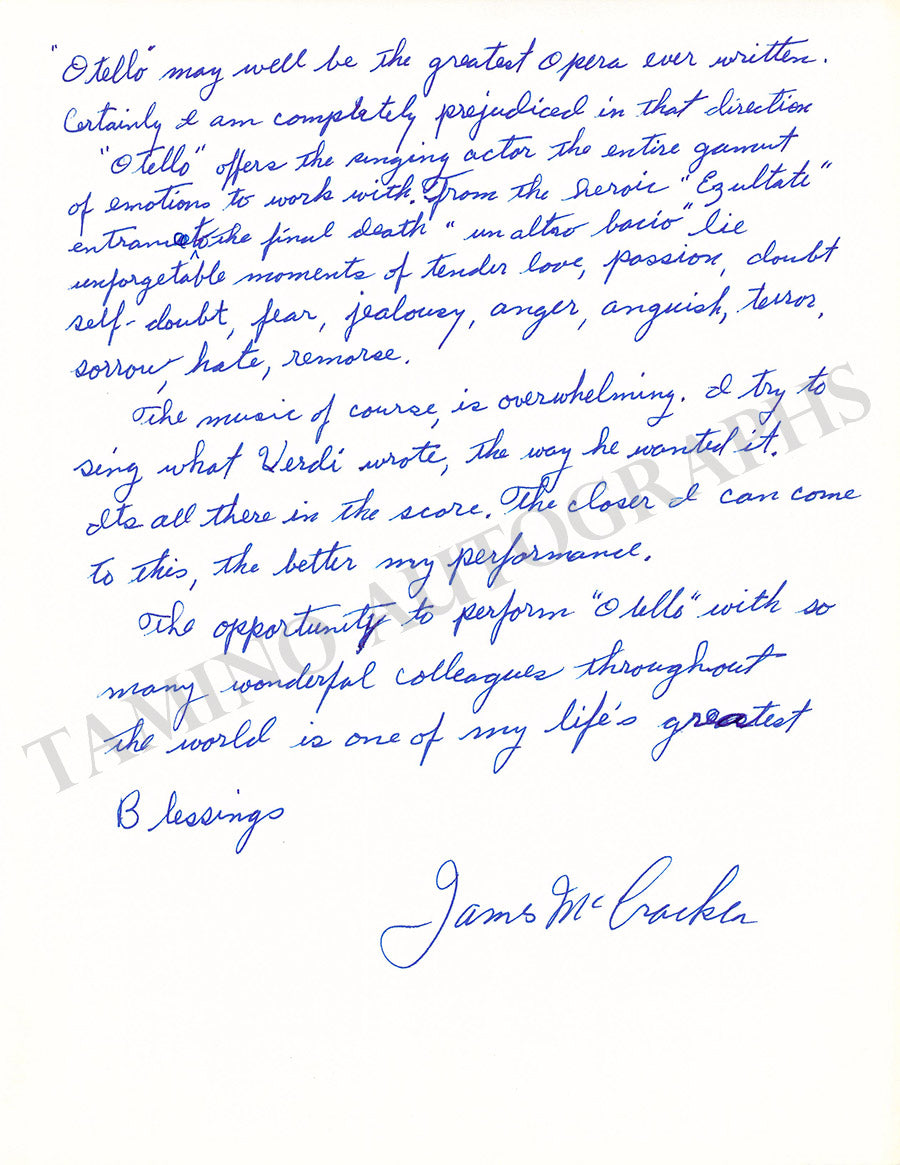 "Otello" may well be the greatest opera ever written.
Certainly I am completely prejudiced in that direction
"Otello" offers the singing actor the entire gamut
of emotions to work with. From the heroic "Ezultate"
entrance to the final death "un altro bacio" lie
unforgetable moments of tender love, passion, doubt
self-doubt, fear, jealousy, anger, anguish, terror,
sorrow, hate, remorse.
The music of course, is overwhelming. I try to
sing what Verdi wrote, the way he wanted it.
Its all there in the score. The closer I can come
to this, the better my performance.
The opportunity to perform "Otello" with so
many wonderful colleagues throughout
the world is one of my life's greatest
Blessings
James McCracken
TAMINO AUTOGRAPHS